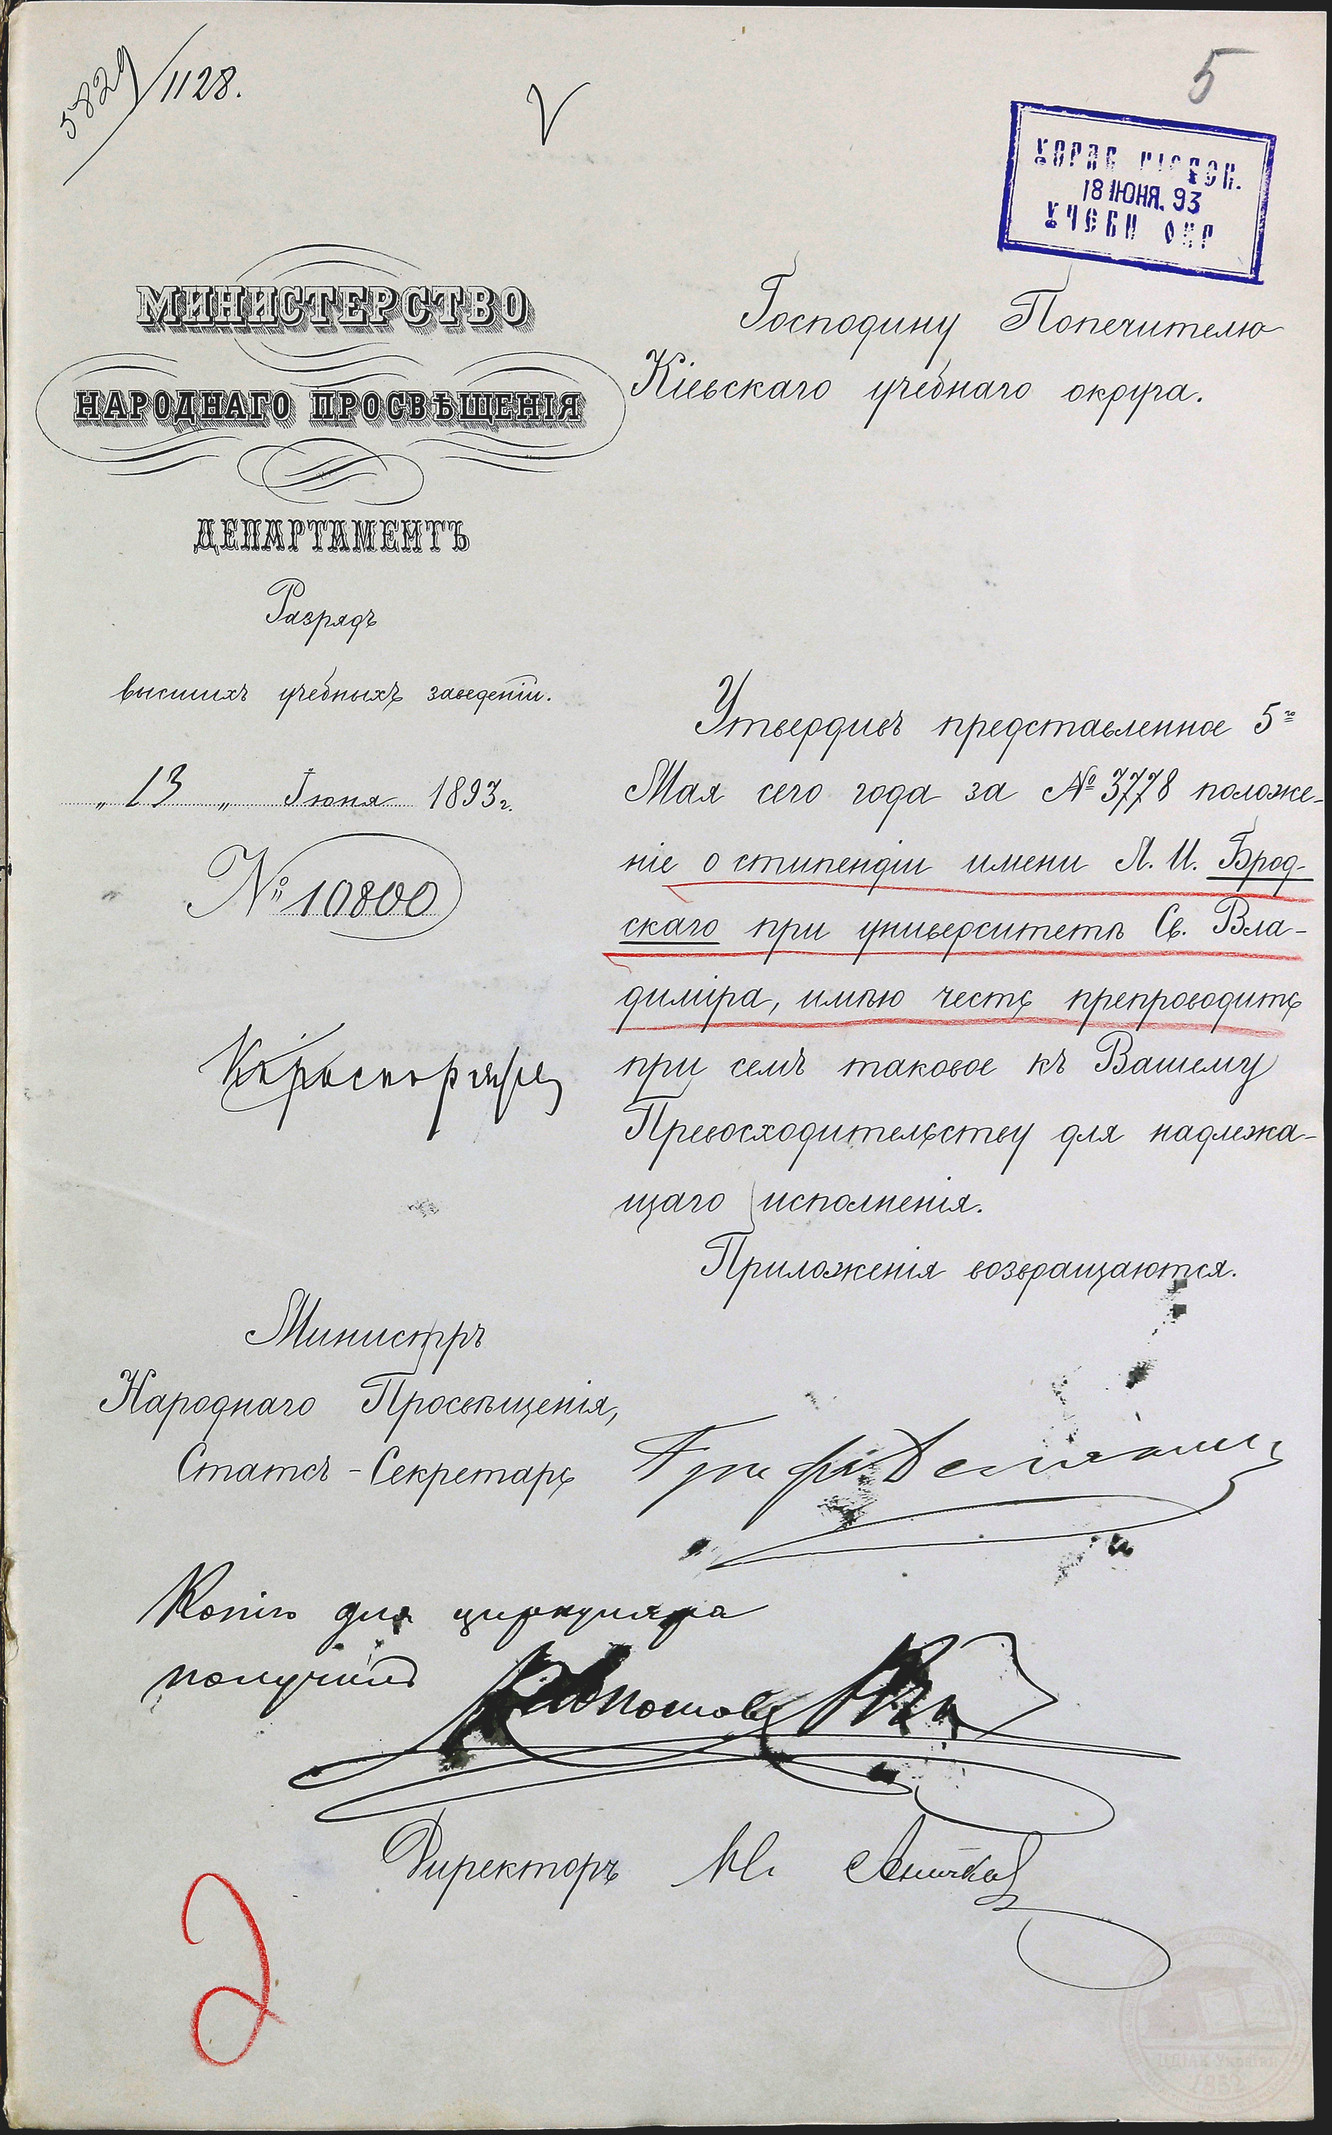 5829/1128.
5
УПРАВ КІЕВСК.
18 ІЮНЯ. 93
УЧЕБН ОКР
МИНИСТЕРСТВО
НАРОДНАГО ПРОСВѢЩЕНІЯ
ДЕПАРТАМЕНТЪ
Разрядъ
высшихъ учебныхъ заведеній.
„ 13 „ Іюня 1893 г.
№ 10800
Господину Попечителю
Кіевскаго учебнаго округа.
Утвердивъ представленное 5го
Мая сего года за № 3778 положе-
ніе о стипендіи имени Л. И. Брод-
скаго при университетѣ Св. Вла-
диміра, имѣю честь препроводить
при семъ таковое къ Вашему
Превосходительству для надлежа-
щаго исполненія.
Приложенія возвращаются.
Министръ
Народнаго Просвѣщенія,
Статсъ-Секретарь Графъ Деляновъ
Копію для циркуляра
получилъ
Директоръ Н. Аничковъ
2
ЦДІАК України
1852